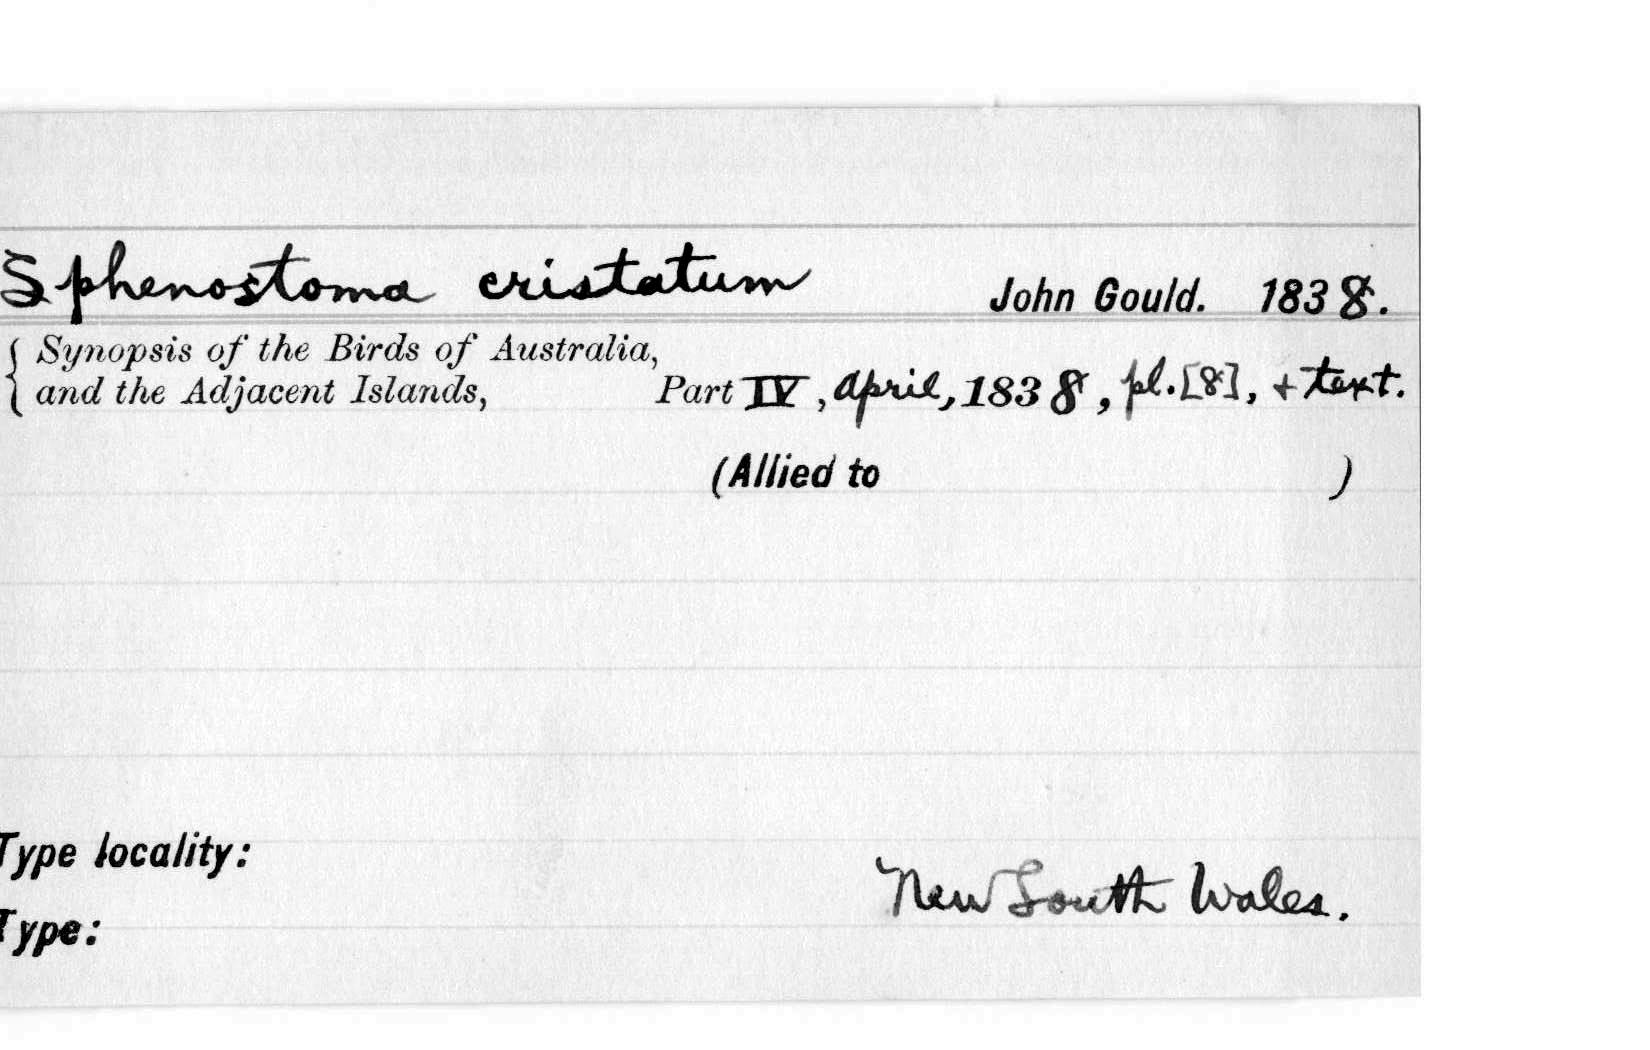 Sphenostoma cristatum John Gould. 1838.
{ Synopsis of the Birds of Australia,
and the Adjacent Islands, Part IV, April, 1838, pl. [8], + text.
(Allied to )
Type locality:
New South Wales.
Type: